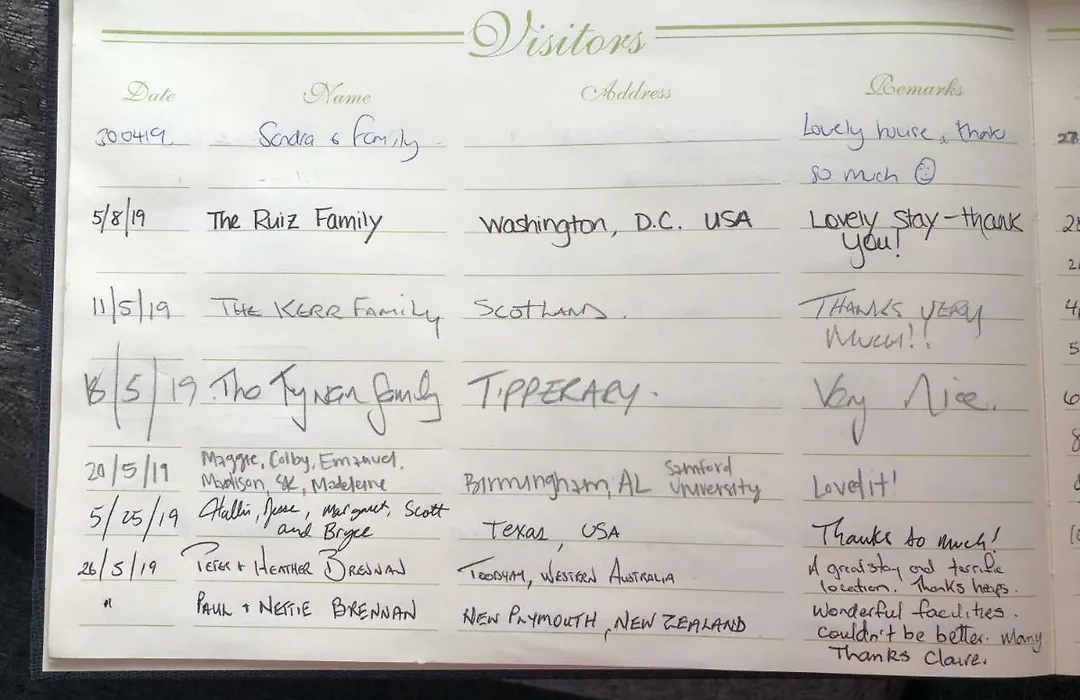 Visitors
Date Name Address Remarks
300419 Sandra & Family Lovely house, thanks
so much ☺
5/8/19 The Ruiz Family Washington, D.C. USA Lovely Stay - thank
you!
11/5/19 THE KERR FAMILY SCOTLAND. THANKS VERY
MUCH!!
18/5/19 The Tynan family TIPPERARY. Very Nice.
Maggie, Colby, Emanuel, Samford
20/5/19 Madison, SK, Madeleine Birmingham, AL University Loved it!
5/25/19 Hallie, Jesse, Margaret, Scott
and Bryce Texas, USA Thanks so much!
26/5/19 PETER + HEATHER BRENNAN TOODYAY, WESTERN AUSTRALIA A great stay and terrific
location. Thanks heaps.
" PAUL + NETTIE BRENNAN NEW PLYMOUTH, NEW ZEALAND Wonderful facilities.
couldn't be better. Many
Thanks Claire.